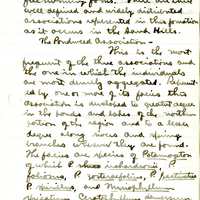 free-swimming forms. There are three
well defined and widely distributed
associations represented in this formation
as it occurs in the Sand Hills.
The Pondweed association—
This is the most
frequent of the three associations and
the one in which the individuals
are most densely aggregated. Represent-
ed by one or more of its facies this
association is developed to greatest degree
in the ponds and lakes of the northern
portion of the region and to a less
degree along rivers and spring
branches wherever they are found.
The facies are species of Potamogeton
of which P. richardsonii, P.
foliosus, P. zosteraefolius, P. pectinatus
P. pusillus, and Myriophyllum
spicatum Ceratophyllum demersum